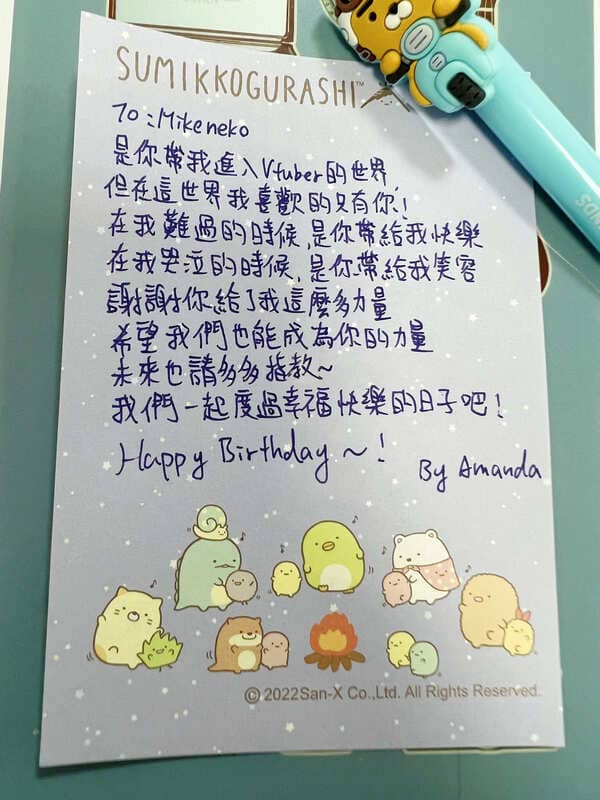 SUMIKKOGURASHI™
To: Mikeneko
是你帶我進入Vtuber的世界,
但在這世界我喜歡的又有你!
在我難過的時候,是你帶給我快樂
在我哭泣的時候,是你帶給我笑容
謝謝你給了我這麼多力量
希望我們也能成為你的力量
未來也請多多指教~
我們一起度過幸福快樂的日子吧!
Happy Birthday ~!
By Amanda
© 2022San-X Co.,Ltd. All Rights Reserved.